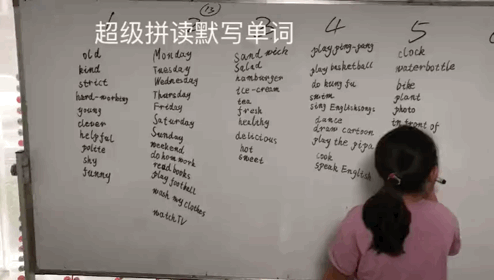 超级拼读默写单词
13
1
old
kind
strict
hard-working
young
clever
helpful
polite
shy
funny
2
Monday
Tuesday
Wednesday
Thursday
Friday
Saturday
Sunday
weekend
do homwork
read books
play football
wash my clothes
watch TV
3
Sandwich
Salad
hamburger
ice-cream
tea
fresh
healthy
delicious
hot
sweet
4
play ping-pong
play basketball
do kung fu
swim
sing Englishsongs
dance
draw cartoon
play the pipa
cook
speak English
5
clock
waterbottle
bike
plant
photo
in front of